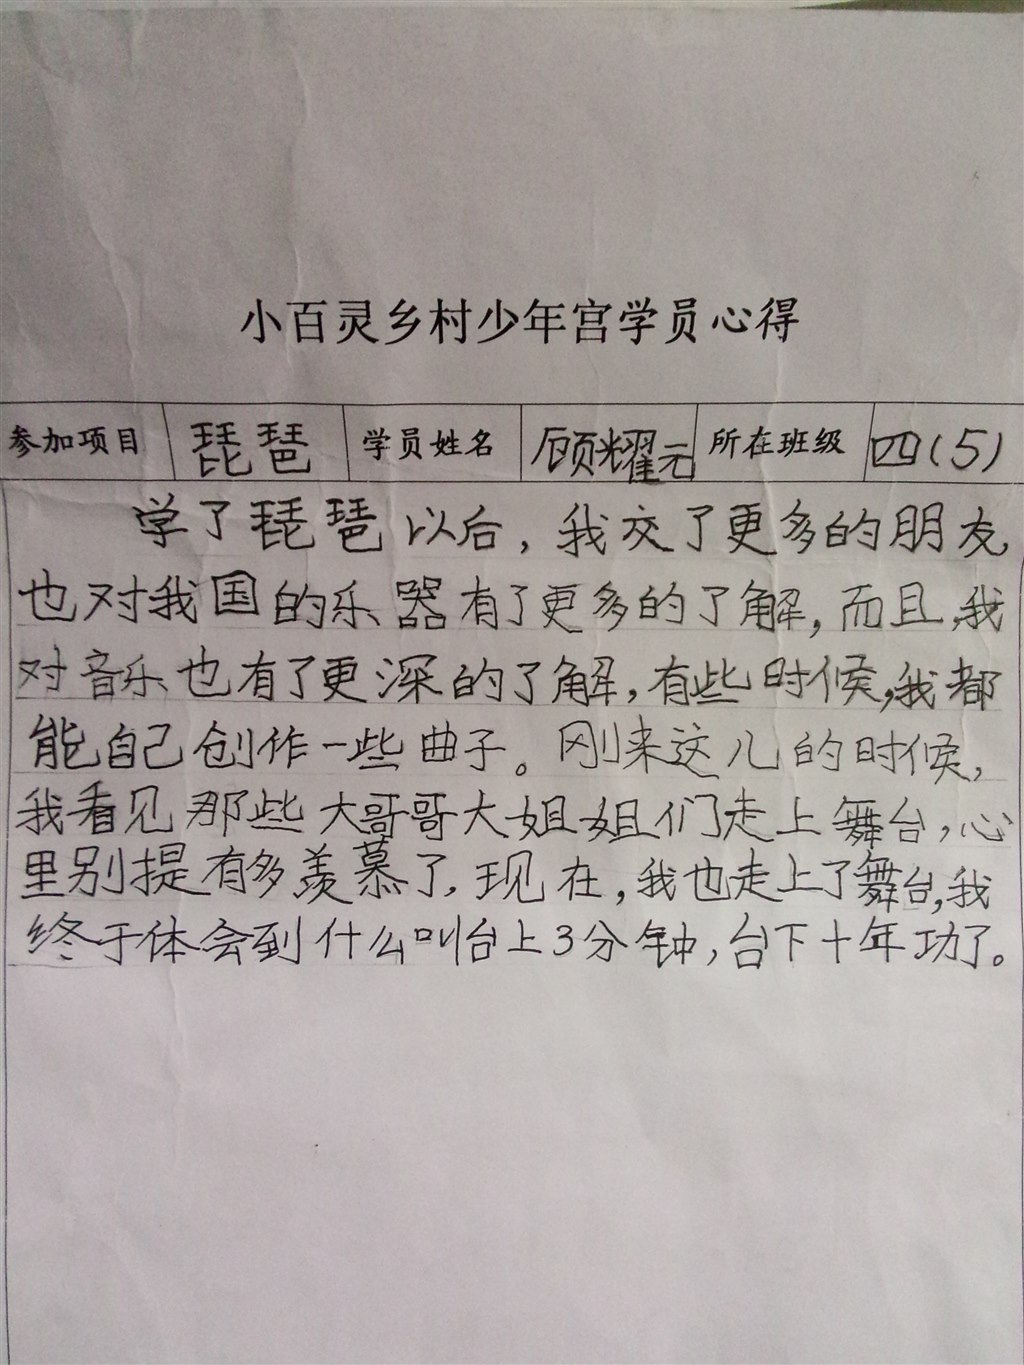 小百灵乡村少年宫学员心得
参加项目 琵琶 学员姓名 顾耀元 所在班级 四(5)
学了琵琶以后,我交了更多的朋友,
也对我国的乐器有了更多的了解,而且,我
对音乐也有了更深的了解,有些时候,我都
能自己创作一些曲子。刚来这儿的时候,
我看见那些大哥哥大姐姐们走上舞台,心
里别提有多羡慕了,现在,我也走上了舞台,我
终于体会到什么叫台上3分钟,台下十年功了。